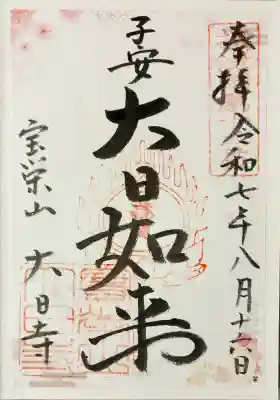 奉拝 令和七年八月十六日
子安
大日如来
宝栄山 大日寺